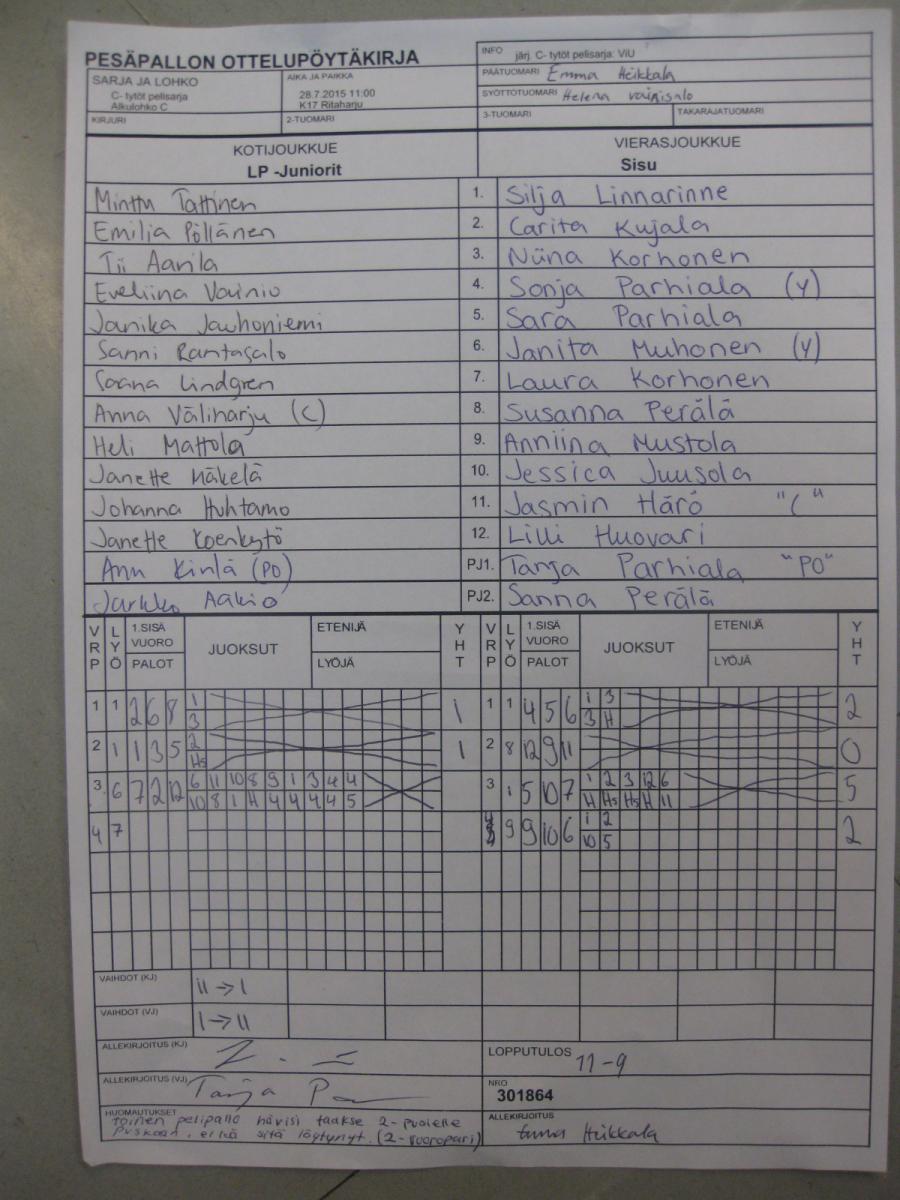 PESÄPALLON OTTELUPÖYTÄKIRJA
INFO järj. C- tytöt pelisarja: ViU
PÄÄTUOMARI Emma Heikkala
SYÖTTÖTUOMARI Helena
3-TUOMARI TAKARAJATUOMARI
SARJA JA LOHKO
C- tytöt pelisarja
Alkulohko C
AIKA JA PAIKKA
28.7.2015 11:00
K17 Ritaharju
KIRJURI 2-TUOMARI
KOTIJOUKKUE VIERASJOUKKUE
LP -Juniorit Sisu
Minttu Tattinen 1. Silja Linnarinne
Emilia Pöllänen 2. Carita Kujala
Tii Aarila 3. Niina Korhonen
Eveliina Vainio 4. Sonja Parhiala (Y)
Janika Jauhoniemi 5. Sara Parhiala
Sanni Rantasalo 6. Janita Muhonen (Y)
Saana Lindgren 7. Laura Korhonen
Anna Väliharju (C) 8. Susanna Perälä
Heli Mattola 9. Anniina Mustola
Janette Mäkelä 10. Jessica Juusola
Johanna Huhtamo 11. Jasmin Härö "C"
Janette Koenkytö 12. Lilli Huovari
Anu Kintä (PO) PJ1. Tanja Parhiala "PO"
Jarkko Aakio PJ2. Sanna Perälä
VRP LYÖ 1.SISÄ VUORO PALOT JUOKSUT ETENIJÄ LYÖJÄ YHT VRP LYÖ 1.SISÄ VUORO PALOT JUOKSUT ETENIJÄ LYÖJÄ YHT
1 1 2 6 8 1 1 1 1 4 5 6 1 3 2
3 3 H
2 1 1 3 5 2 1 2 8 12 9 11 0
Hs
3 6 7 2 12 6 11 10 8 9 1 3 4 4 3 1 5 10 7 1 2 3 12 6 5
10 8 1 H 4 4 4 4 5 H Hs Hs H 11
4 7 9 9 10 6 1 2 2
10 5
VAIHDOT (KJ) II → I
VAIHDOT (VJ) I → II
ALLEKIRJOITUS (KJ)
LOPPUTULOS 11-9
ALLEKIRJOITUS (VJ) Tanja
NRO
301864
HUOMAUTUKSET
Toinen pelipallo hävisi taakse 2-puolelle
puskaan, eikä sitä löytynyt. (2-vuoropari)
ALLEKIRJOITUS
Emma Heikkala